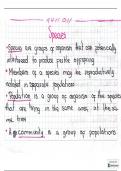 Species
• Species are groups of organisms that can potentially
interbreed to produce fertile offspring
• Members of a species may be reproductively
isolated in separate populations
• Population is a group of organisms of the species
that are living in the same area at the sa
me time
• A community is a group of populations